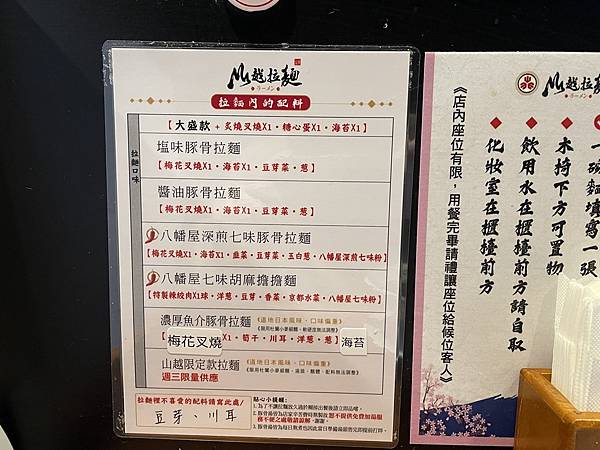 山越拉麵
ラーメン
拉麵內的配料
拉麵口味
【大盛款 + 炙燒叉燒X1・糖心蛋X1・海苔X1】
塩味豚骨拉麵
【梅花叉燒X1・海苔X1・豆芽菜・葱】
醬油豚骨拉麵
【梅花叉燒X1・海苔X1・豆芽菜・葱】
八幡屋深煎七味豚骨拉麵
【梅花叉燒X1・海苔X1・韭菜・豆芽菜・玉白葱・八幡屋深煎七味粉】
八幡屋七味胡麻擔擔麵
【特製辣絞肉X1球・洋葱・豆芽・香菜・京都水菜・八幡屋七味粉】
濃厚魚介豚骨拉麵《道地日本風味・口味偏重》
梅花叉燒 X1・筍干・川耳・洋葱・葱】 海苔
山越限定款拉麵《道地日本風味・口味偏重》
週三限量供應
拉麵裡不喜愛的配料請寫此處/
豆芽、川耳
貼心小提醒:
1. 為了不讓拉麵放久過於糊掉出餐後請立即品嚐。
山越拉麵
一碗麵填寫一張
木持下方可置物
飲用水在櫃檯前方請自取
化妝室在櫃檯前方
《店內座位有限，用餐完畢請禮讓座位給候位客人》